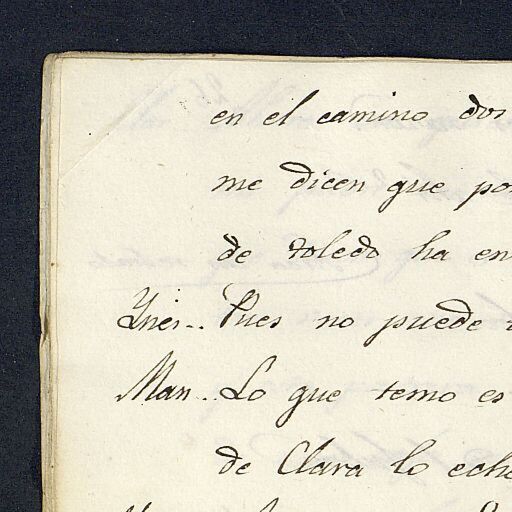 en el camino dos
me dicen que por
de toledo ha en
Ynes.. Pues no puede
Man.. Lo que temo es
de Clara lo eche